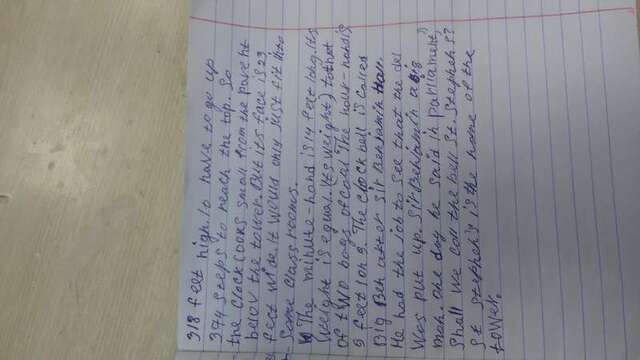 318 feet high. to have to go up
394 steps to reach the top. So
the clock looks small from the paveht
belov the tower. But its face is 23
feet wide. It would only just fit into
Some Class rooms.
The minute-hand is 14 feet long. Its
weight is equal. (Its weight) to that
of two bags of coal The hour-hand is
9 feet long. The clock bell is called
Big Ben after Sir Benjamin Hall.
He had the job to see that the del
Was put up. Sir Benjamin a big
man. One day he said in parliament,
Shall we call the bell St. Stephen s?
St Stephen's is the name of the
tower.